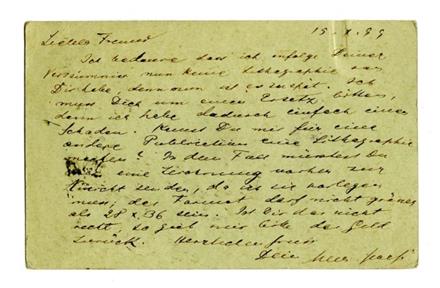 15.1.99
Liebster Freund
Ich bedaure dass ich infolge Deiner
nun keine Lithographie von
Dir habe, denn nun ist es zu spät. Ich
muss Dich um einen Ersatz bitten,
denn ich habe dadurch einfach einen
Schaden. Kannst Du mir für eine
andere Publication eine Lithographie
machen? In dem Fall müsstest Du
eine Zeichnung vorher zur
Ansicht senden, da ich sie vorlegen
muss, das Format darf nicht grösser
als 28 x 36 sein. Ist Dir das nicht
recht, so gieb mir bitte das Geld
zurück. Herzlichen Gruss
Dein